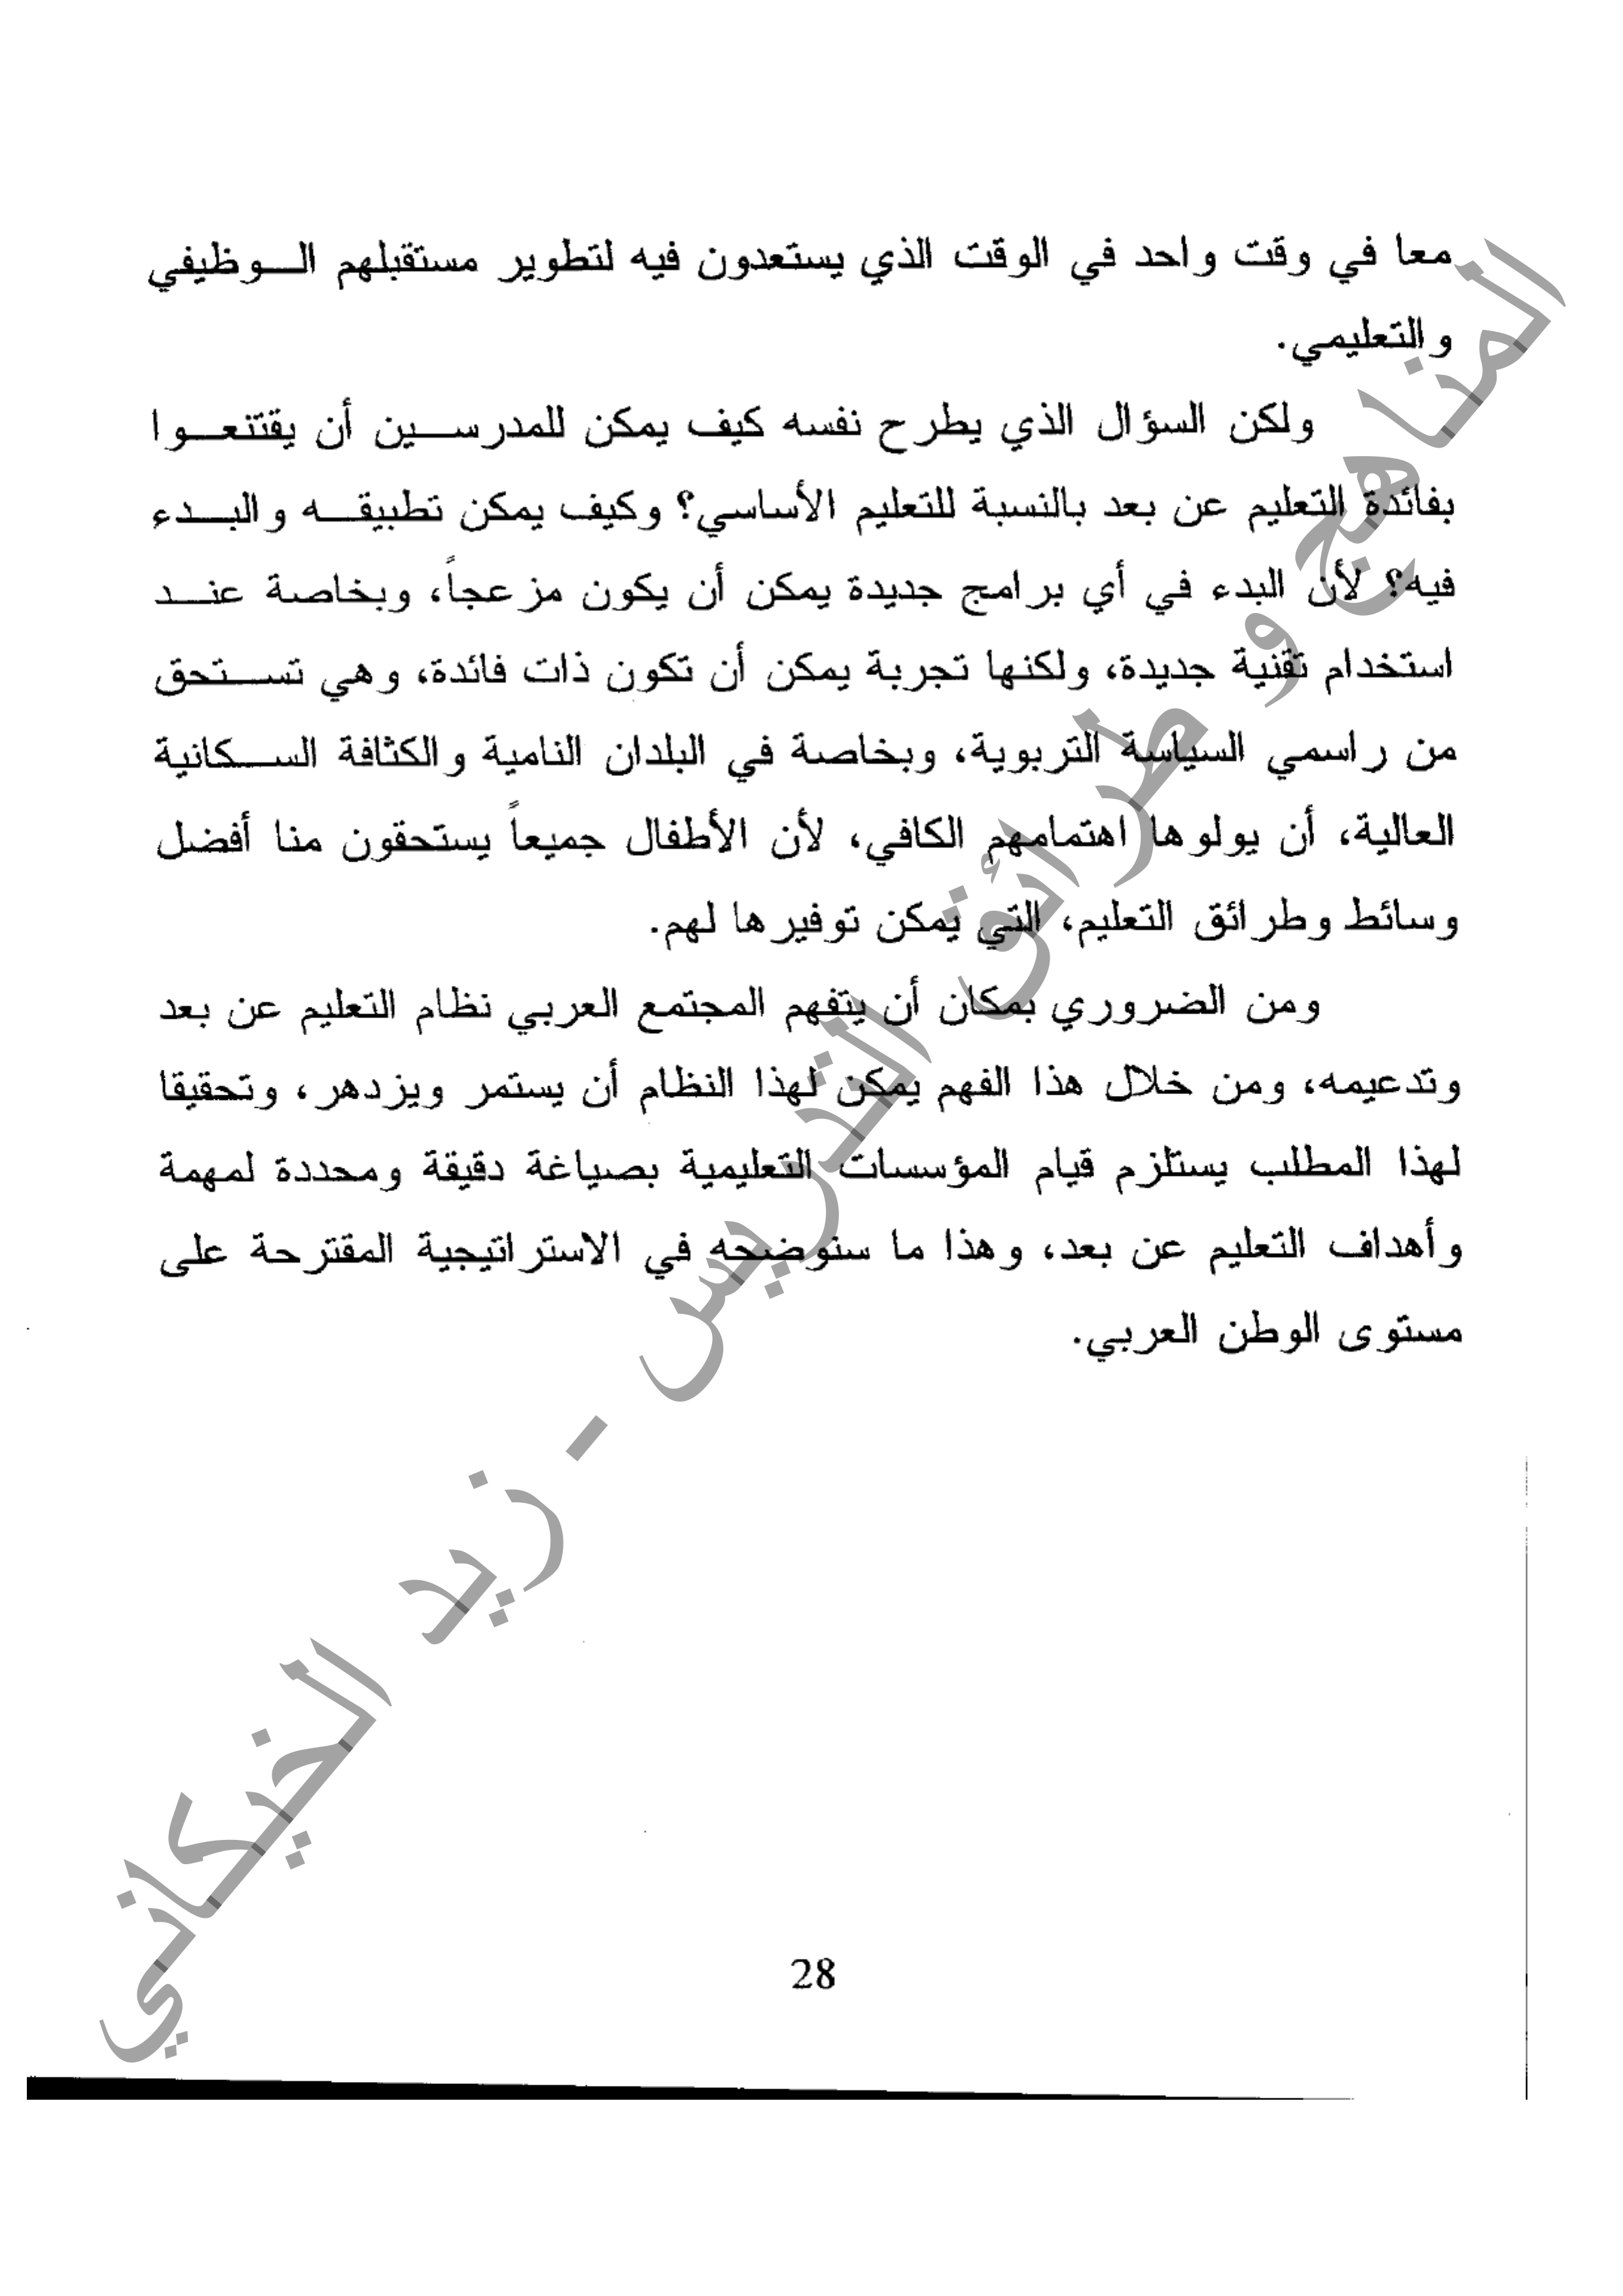 معا في وقت واحد في الوقت الذي يستعدون فيه لتطوير مستقبلهم الـوظيفي
والتعليمي.
ولكن السؤال الذي يطرح نفسه كيف يمكن للمدرسـين أن يقتنعـوا
بفائدة التعليم عن بعد بالنسبة للتعليم الأساسي؟ وكيف يمكن تطبيقـه والبـدء
فيه؟ لأن البدء في أي برامج جديدة يمكن أن يكون مزعجاً، وبخاصة عنـد
استخدام تقنية جديدة، ولكنها تجربة يمكن أن تكون ذات فائدة، وهي تسـتحق
من راسمي السياسة التربوية، وبخاصة في البلدان النامية والكثافة السـكانية
العالية، أن يولوها اهتمامهم الكافي، لأن الأطفال جميعاً يستحقون منا أفضل
وسائط وطرائق التعليم، التي يمكن توفيرها لهم.
ومن الضروري بمكان أن يتفهم المجتمع العربي نظام التعليم عن بعد
وتدعيمه، ومن خلال هذا الفهم يمكن لهذا النظام أن يستمر ويزدهر، وتحقيقا
لهذا المطلب يستلزم قيام المؤسسات التعليمية بصياغة دقيقة ومحددة لمهمة
وأهداف التعليم عن بعد، وهذا ما سنوضحه في الاستراتيجية المقترحة على
مستوى الوطن العربي.
المناهج و طرائق التدريس - زيد الخيكاني
28